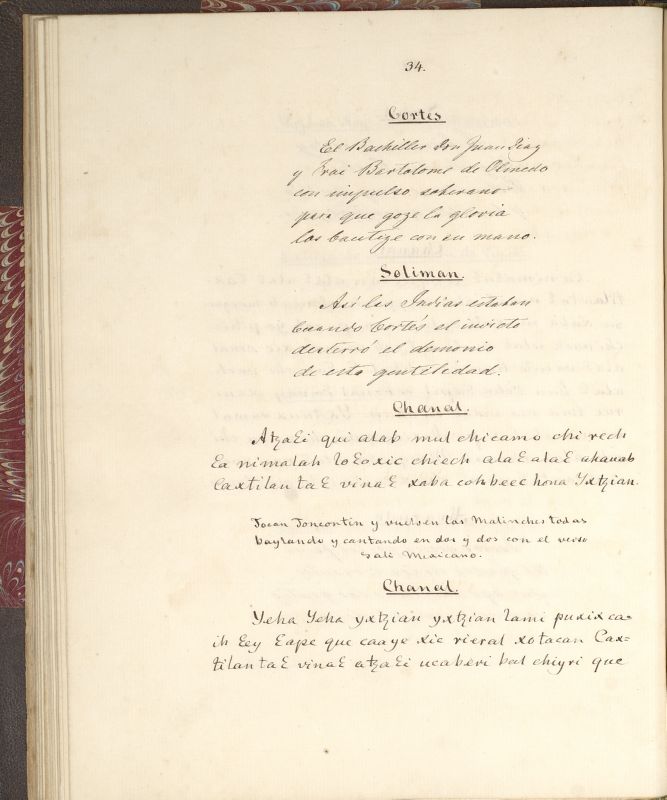 34.
Cortés
El Bachiller Don Juan Diaz
y Frai Bartolomé de Olmedo
con impulso soberano
para que goze la gloria
los bautize con su mano.
Soliman.
Así las Indias estaban
Cuando Cortés el invicto
desterró el demonio
de esta gentilidad.
Chanal.
Atꜩaꜫi qui alab mul chicamo chi rech
ꜫa nimalah loꜫoxic chiech alaꜫ alaꜫ ahauab
Caxtilan taꜫ vinaꜫ xaba cohbeec hona Yxtꜩian.
Tocan Toncontin y vuelven las Malinches todas
baylando y cantando en dos y dos con el verso
Sali Mexicano.
Chanal.
Yeha Yeha yxtꜩian yxtꜩian lami puxix ca=
ih ꜫey ꜫape que caaye xic rieral xotacan Cax=
tilan taꜫ vinaꜫ atꜩaꜫi ucaberi bal chiyri que